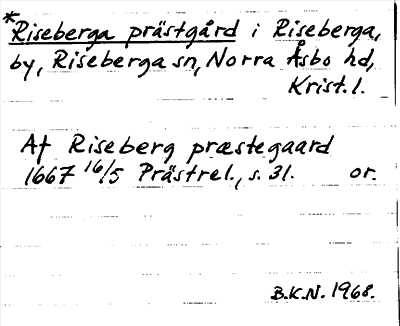 *Riseberga prästgård i Riseberga,
by, Riseberga sn, Norra Åsbo hd,
Krist. l.
Af Riseberg præstegaard
1667 16/5 Prästrel., s. 31. or.
B.K.N. 1968.